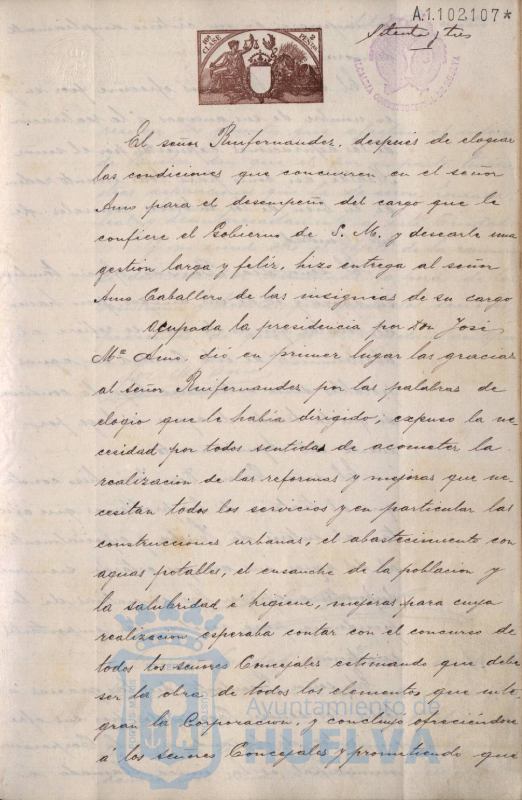 A.1.102107*
Setenta y tres
10ª CLASE
2 PESETAS
ALCALDIA CONSTITUCIONAL DE HUELVA
El señor Ruifernandez, despues de elogiar
las condiciones que concurren en el señor
Amo para el desempeño del cargo que le
confiere el Gobierno de S. M. y desearle una
gestion larga y feliz, hizo entrega al señor
Amo Caballero de las insignias de su cargo
Ocupada la presidencia por Don José
Mª Amo, dió en primer lugar las gracias
al señor Ruifernandez por las palabras de
elogio que le habia dirigido; expuso la ne-
cesidad por todos sentida de acometer la
realizacion de las reformas y mejoras que ne-
cesitan todos los servicios y en particular las
construcciones urbanas, el abastecimiento con
aguas potables, el ensanche de la poblacion y
la salubridad é higiene, mejoras para cuya
realizacion esperaba contar con el concurso de
todos los señores Concejales estimando que debe
ser la obra de todos los elementos que inte-
gran la Corporacion, y concluyó ofreciéndose
á los señores Concejales y prometiendo que
Ayuntamiento de
HUELVA